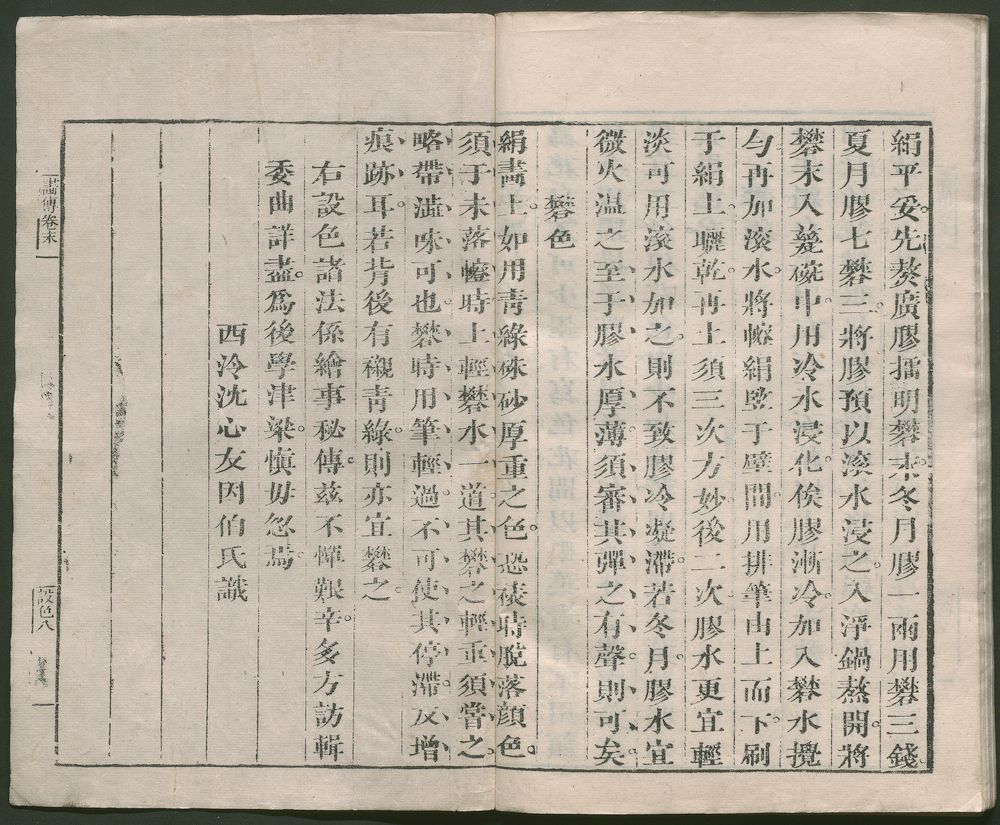 絹平妥。先熬廣膠擂明礬末。冬月膠一兩用礬三錢。
夏月膠七礬三。將膠預以滾水浸之。入淨鍋熬開。將
礬末入甆碗中用冷水浸化。俟膠漸冷。加入礬水攪
勻再加滾水。將幉絹竪于壁間用排筆由上而下刷
于絹上曬乾。再上須三次方妙。後二次膠水更宜輕
淡可用滾水加之。則不致膠冷凝滯。若冬月膠水宜
微火温之。至于膠水厚薄。須審其彈之有聲則可矣。
礬色
絹畫上如用青綠硃砂厚重之色。恐裱時脫落顔色。
須于未落幉時上輕礬水一道。其礬之輕重須嘗之
略帶澁味可也。礬時用筆輕過不可使其停滯。反增
痕跡耳。若背後有襯青綠。則亦宜礬之。
右設色諸法係繪事秘傳。兹不憚艱辛。多方訪輯
委曲詳盡。爲後學津梁慎毋忽焉。
西泠沈心友因伯氏識
畫傳卷末
設色八